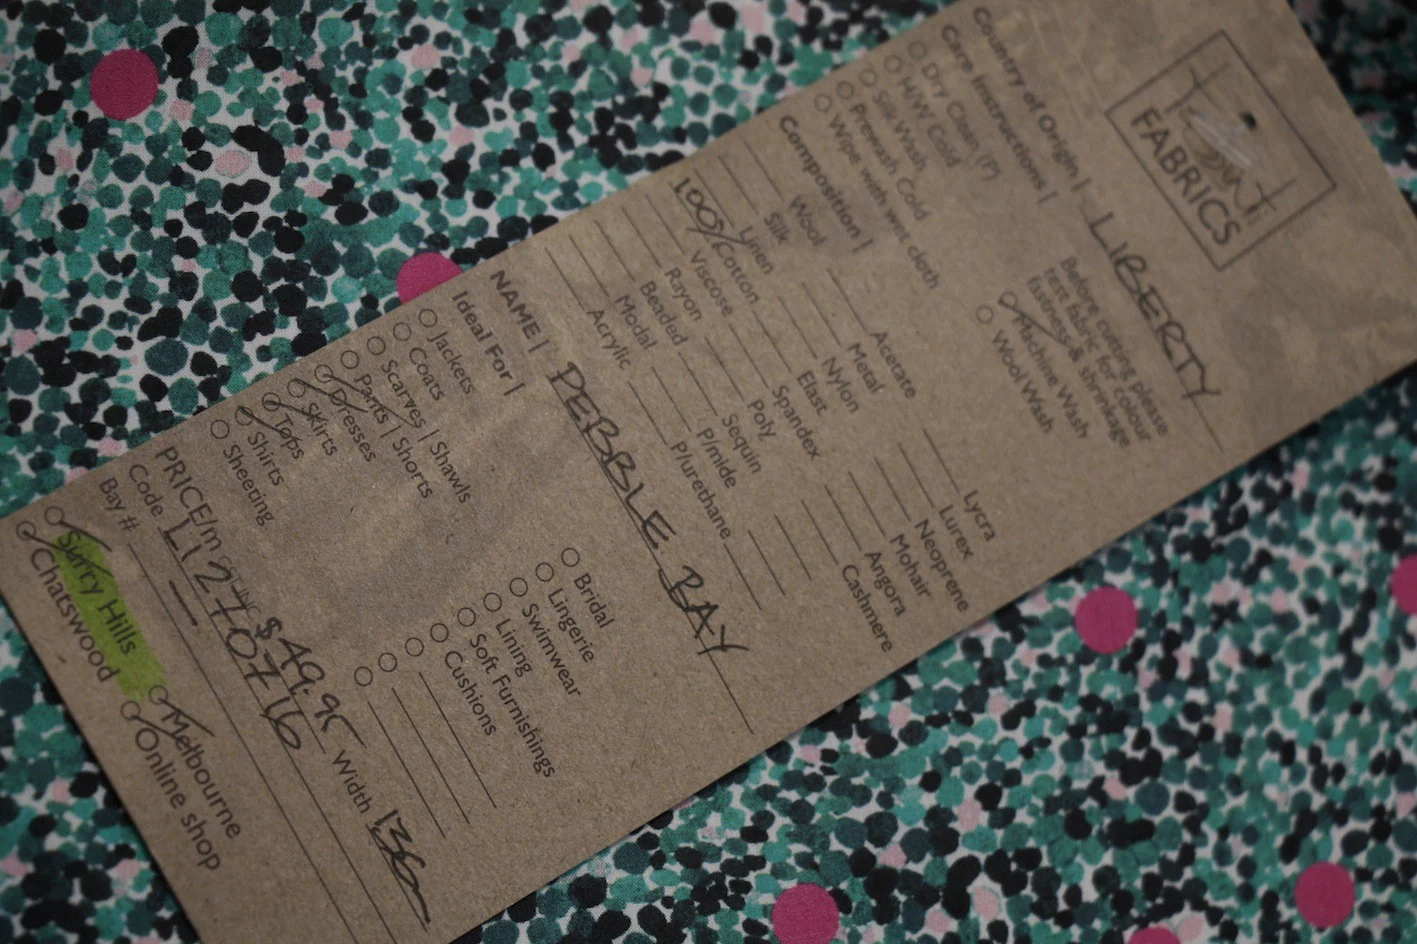 Tessuti
FABRICS
Country of Origin | LIBERTY
Care Instructions |
Before cutting please
test fabric for colour
fastness & shrinkage
Dry Clean (P)
H/W Cold
Silk Wash
Prewash Cold
Wipe with wet cloth
Machine Wash
Wool Wash
Composition |
Wool
Silk
Linen
100% Cotton
Viscose
Rayon
Beaded
Modal
Acrylic
Acetate
Metal
Nylon
Elast
Spandex
Poly
Sequin
P/mide
P/urethane
Lycra
Lurex
Neoprene
Mohair
Angora
Cashmere
NAME | PEBBLE BAY
Ideal For |
Jackets
Coats
Scarves | Shawls
Pants | Shorts
Dresses
Skirts
Tops
Shirts
Sheeting
Bridal
Lingerie
Swimwear
Lining
Soft Furnishings
Cushions
PRICE/m $49.95 Width 136
Code LI 270716
Bay # —
Surry Hills
Chatswood
Melbourne
Online shop